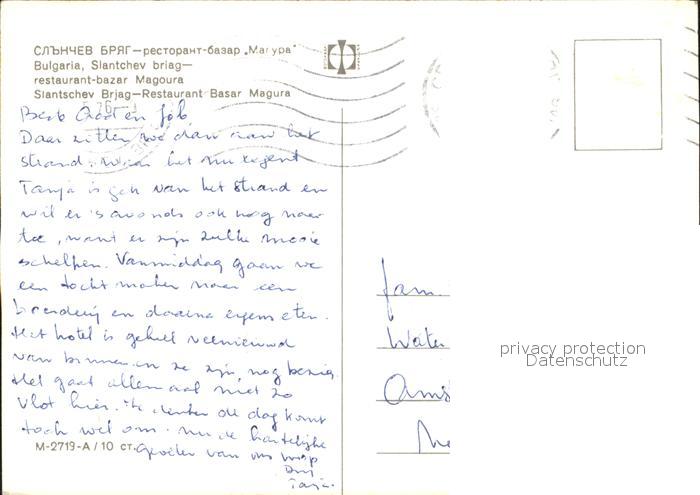 СЛЪНЧЕВ БРЯГ—ресторант-базар „Магура"
Bulgaria, Slantchev briag—
restaurant-bazar Magoura
Slantschev Brjag—Restaurant Basar Magura
Daar zitten we dan aan het
strand. waar het nu regent
Tanja is gek van het strand en
wil er 's avonds ook nog naar
toe, want er zijn zulke mooie
schelpen. Vanmiddag gaan we
een tocht maken naar een
boerderij en daarna eten.
Het hotel is geheel vernieuwd
van binnen en ze zijn nog bezig.
Het gaat allemaal niet zo
vlot hier. de dag komt
toch wel om. hartelijke
van ons
Tanja.
М-2719-А / 10 ст.
fam.
Water
Ams
privacy protection
Datenschutz